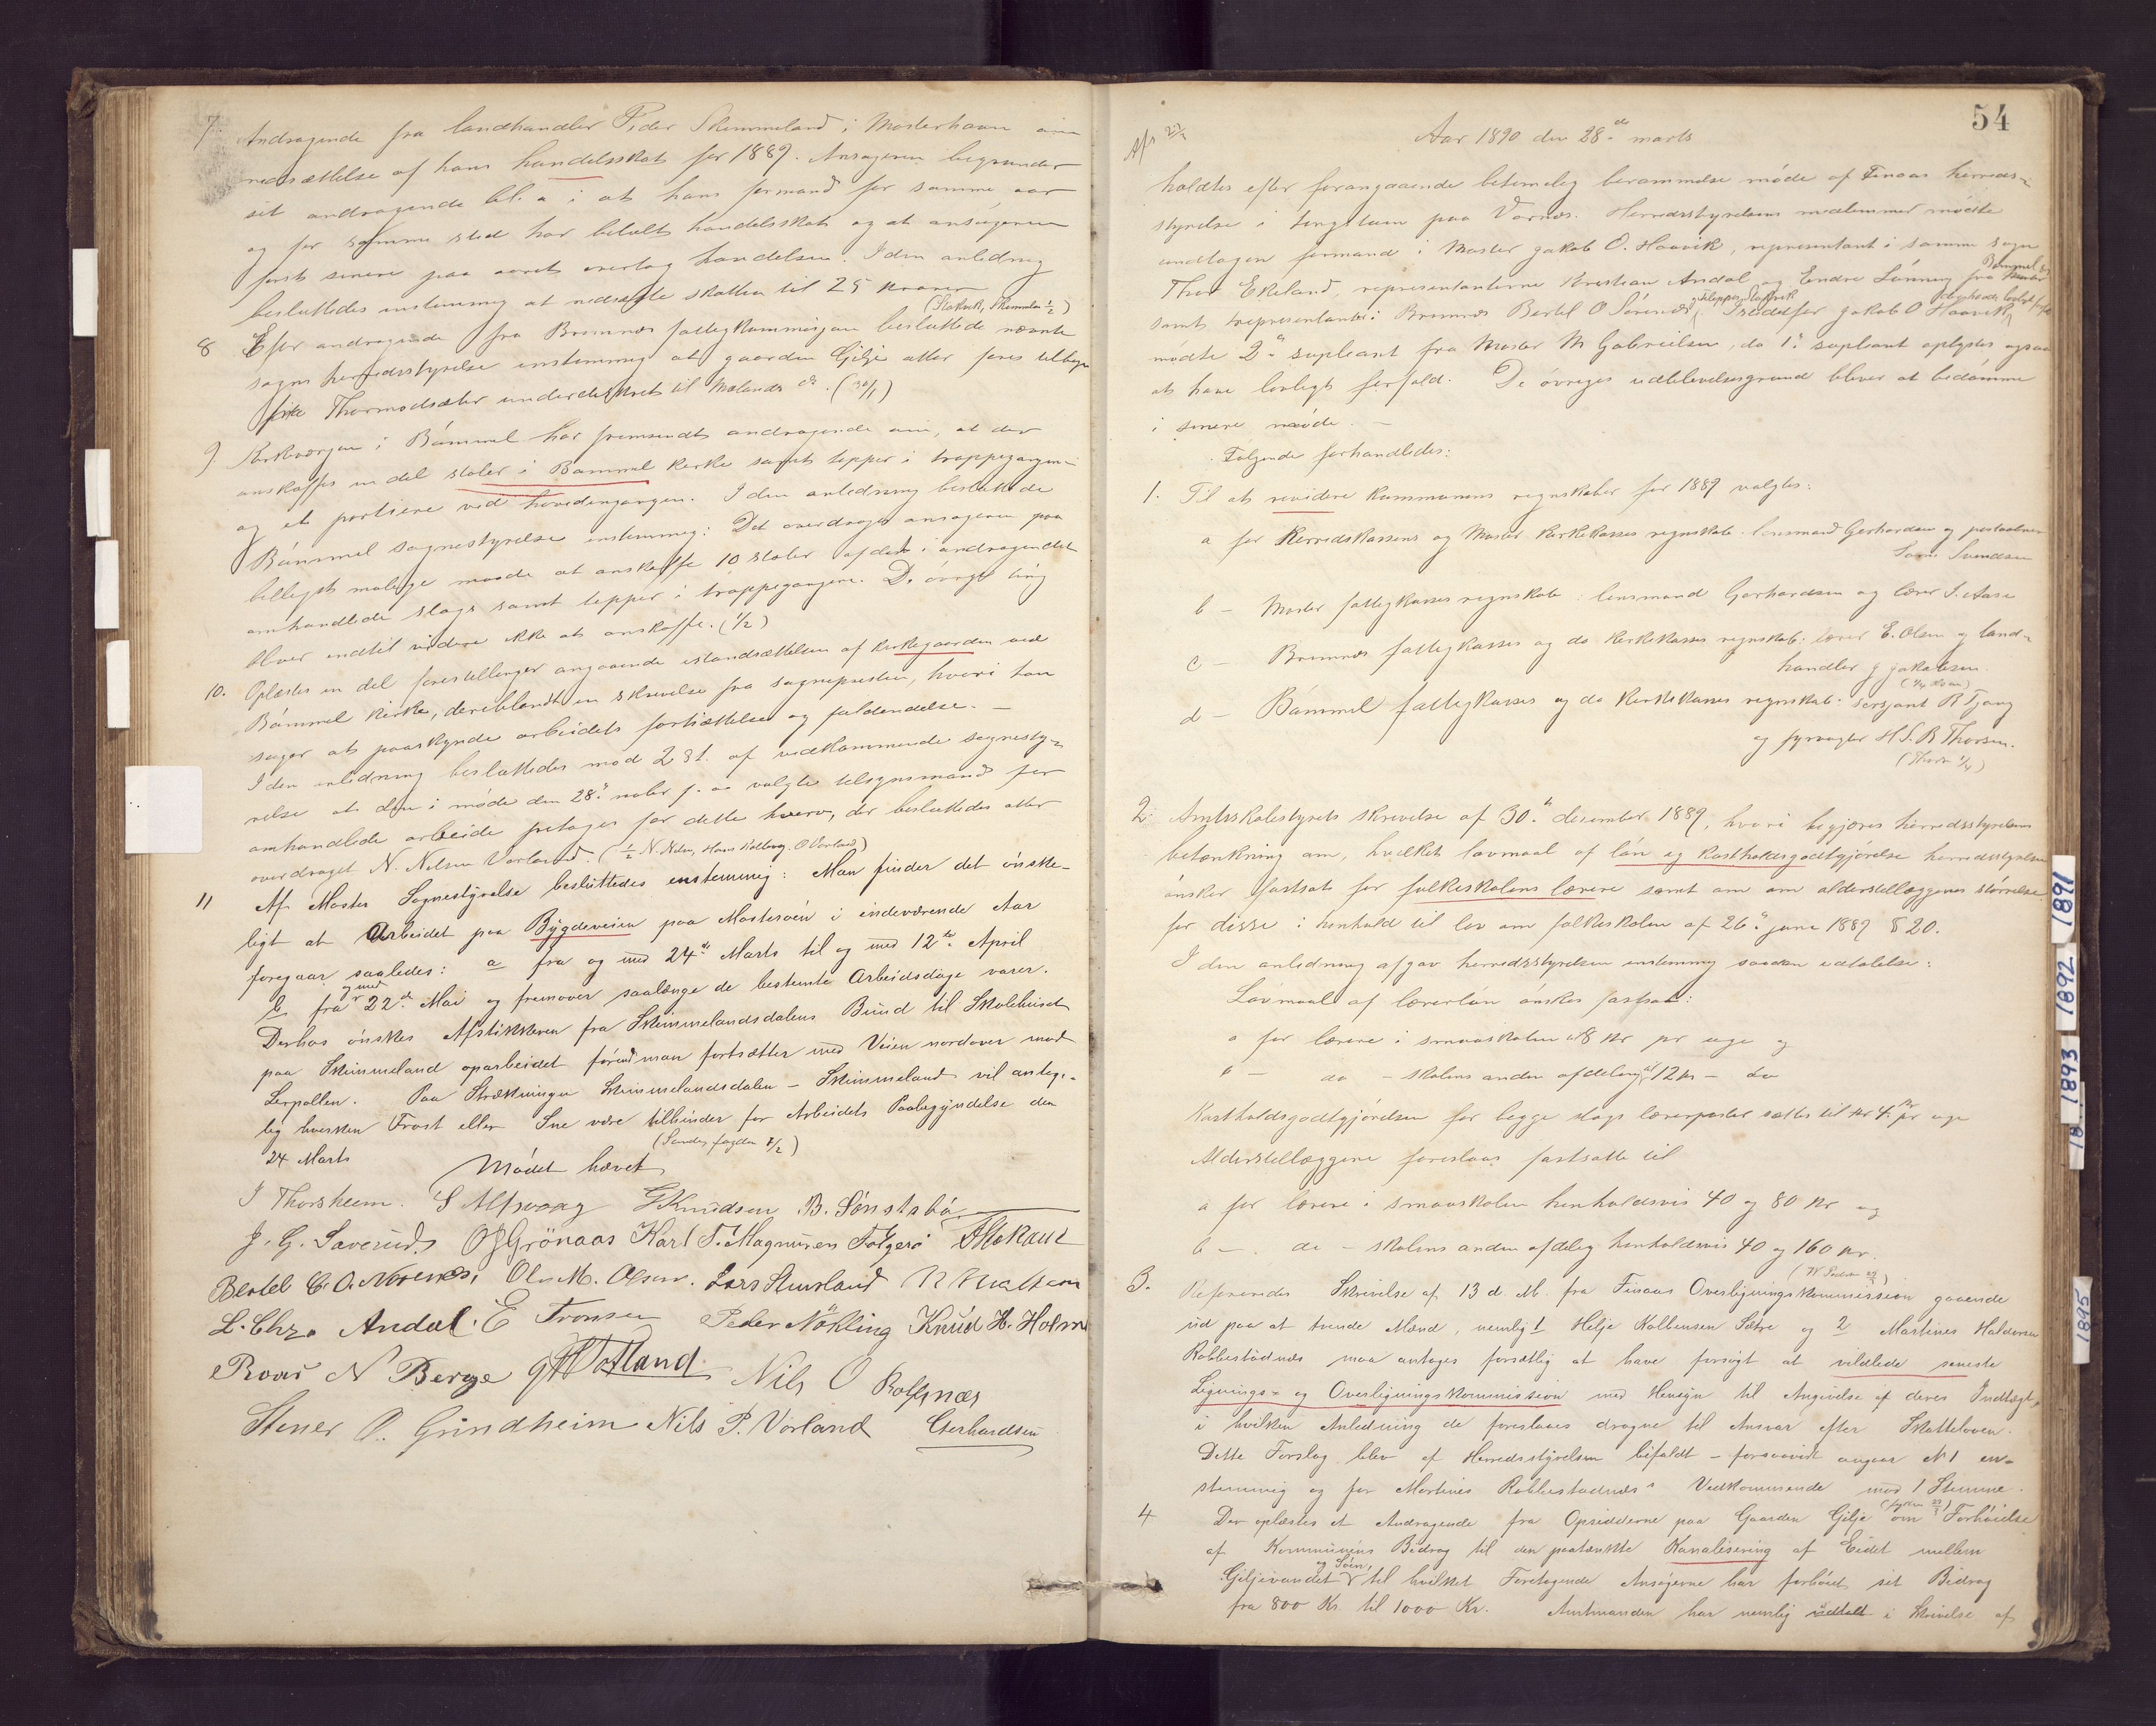 7. Andragende fra landhandler Peder Skimmeland i Mosterhavn om
nedsættelse af hans handelsskat for 1889. Ansøgeren begrunder
sit andragende bl. a i at hans formand for samme aar
og for samme sted har betalt handelsskat og at ansøgeren
først senere paa aaret overtog handelen. I den anledning
besluttedes enstemmig at nedsætte skatten til 25 kroner
(Stokvik, Skimmelan 1/2)
8 Efter andragende fra Bremnæs fattigkommisjon besluttede nævnte
sogns herredsstyrelse enstemmig at gaarden Gilje atter føres tilbage
fra Thormodsæter underdistrikt til Mælands do. (30/1)
9 Kirkeværgen i Bømmel har fremsendt andragende om, at der
anskaffes en del stoler i Bømmel kirke samt tepper i trappegangen
og et portiere ved hovedingangen. I den anledning besluttede
Bømmel sognestyrelse enstemmig: Det overdrages ansøgeren paa
billigst mulige maade at anskaffe 10 stoler af det i andragendet
omhandlede slags samt tepper i trappegangene. De øvrige ting
bliver indtil videre ikke at anskaffe. (1/2)
10. Oplæstes en del forestillinger angaaende istandsættelsen af kirkegaarden ved
Bømmel kirke, deriblandt en skrivelse fra sognepresten, hvori han
søger at paaskynde arbeidets fortsættelse og fuldendelse. –
I den anledning besluttedes mod 2 st. af vedkommende sognesty-
relse at den i møde den 28de novbr f. a valgte tilsynsmand for
omhandlede arbeide fritages for dette hverv, der besluttedes atter
overdraget N. Nilsen Vorland. (1/2 N. Nilsen, Hans Kolberg, O Vorland)
11 Af Moster Sognestyrelse besluttedes enstemmig: Man finder det ønske-
ligt at Arbeidet paa Bygdeveien paa Mosterøen i indeværende Aar
foregaar saaledes: a fra og med 24de Marts til og med 12te April
b fra og med 22de Mai og fremover saalænge de bestemte Arbeidsdage varer.
Derhos ønskes Afstikkeren fra Skimmelandsdalens Bund til Skolehuset
paa Skimmeland oparbeidet førend man fortsætter med Veien nordover mod
Lerpollen. Paa Strækningen Skimmelandsdalen – Skimmeland vil antage-
lig hverken Frost eller Sne være tilhinder for Arbeidets Paabegyndelse den
24 Marts (Sendes fogden 1/2)
Mødet hævet
J Thorsheim. S Alfsvaag G Knudsen B. Sønstabø
J. G. Laverud. O J Grönaas Karl T. Magnusen Folgerø
Bertel C. O. Norenes, Ole M. Olsen. Lars Stuvland
L. Chr. Andal. E Tronsen Peder Nökling Knud H. Holm
Roar N Berge Vatland Nils O Rolfsnæs
Stener O. Grindheim Nils P. Vorland Gerhardsen
54
Afs 29/3
Aar 1890 den 28de marts
holdtes efter forangaaende betimelig berammelse møde af Finaas herreds-
styrelse i tingstuen paa Vornæs. Herredsstyrelsens medlemmer mødte
undtagen formand i Moster Jakob O. Haavik, representant i samme sogn
Thor Ekeland, representanterne Kristian Andal og Endre Lønning fra Bømmel
samt representanter i Bremnæs Bertel O Sørenes og Filippus Stokvik. Istedetfor Jakob O Haavik
mødte 2den supleant fra Moster M Gabrielsen, da 1ste supleant oplystes ogsaa
at have lovligt forfald. De øvriges udeblivelsesgrund bliver at bedømme
i senere møde. –
Følgende forhandledes:
1. Til at revidere kommunens regnskaber for 1889 valgtes:
a for Herredskassens og Moster kirkekasses regnskab: lensmand Gerhardsen og postaabner
Svendsen
b – Moster fattigkasses regnskab: lensmand Gerhardsen og lærer S. Aase
c – Bremnæs fattigkasses og do kirkekasses regnskab: lærer E. Olsen og land-
handler J Jakobsen.
d – Bømmel fattigkasses og do kirkekasses regnskab: sersjant R Tjong
og fyrvogter H. S. B Thorsen.
2. Amtsskolestyrets skrivelse af 30te desember 1889, hvori begjæres herredsstyrelsens
betænkning om, hvilket lavmaal af løn og kostholdsgodtgjørelse herredsstyrelsen
ønsker fastsat for folkeskolens lærere samt om om alderstillæggenes størrelse
for disse i henhold til lov om folkeskolen af 26de juni 1889 § 20.
I den anledning afgav herredsstyrelsen enstemmig saadan udtalelse:
Lavmaal af lærerløn ønskes fastsat:
a for lærere i smaaskolen til 8 kr pr uge og
b – do – skolens anden afdeling til 12 kr – do
Kostholdsgodtgjørelsen for begge slags lærerposter sættes til kr 4 pr uge
Alderstillæggene foreslaaes fastsatte til
a for lærere i smaaskolen henholdsvis 40 og 80 kr og
b – do – skolens anden afdeling henholdsvis 40 og 160 kr.
3. Refereredes Skrivelse af 13 d. M. fra Finaas Overligningskommission gaaende
ud paa at tvende Mænd, nemlig 1 Helje Kolbensen Sætre og 2 Martines Haldorsen
Robbestadnæs maa antages forsætlig at have forsøgt at vildlede seneste
Lignings- og Overligningskommission med Hensyn til Angivelse af deres Indtægt,
i hvilken Anledning de foreslaaes dragne til Ansvar efter Skatteloven.
Dette Forslag blev af Herredsstyrelsen bifaldt – forsaavidt angaar No 1 en-
stemmig og for Martines Robbestadnæs's Vedkommende mod 1 Stemme.
4 Der oplæstes et Andragende fra Opsidderne paa Gaarden Gilje om Forhøielse
af Kommunens Bidrag til den paatænkte Kanalisering af Eidet mellem
Giljevandet og Søen, til hvilket Foretagende Ansøgerne har forhøiet sit Bidrag
fra 800 Kr. til 1000 Kr. Amtmanden har nemlig udtalt i Skrivelse af
1891
1892
1893
18
1895